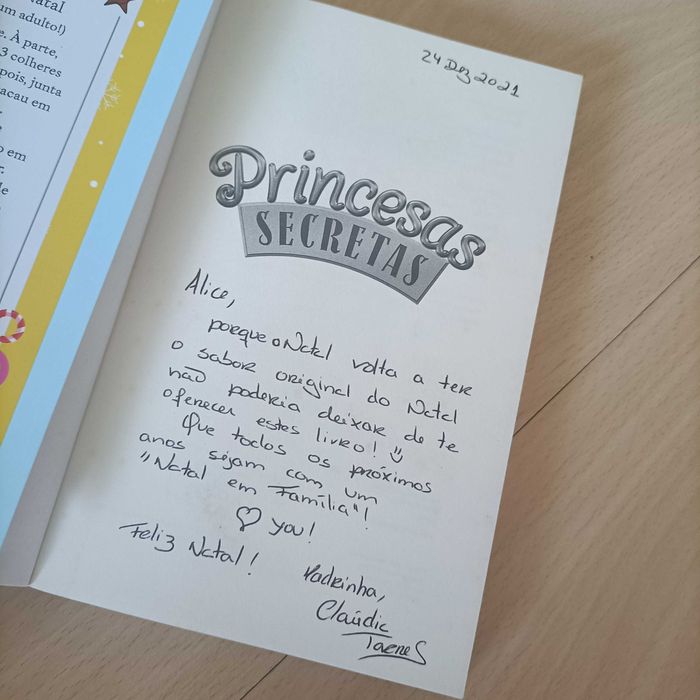 Natal
um adulto!)
e. À parte,
3 colheres
pois, junta
acau em
o em
r.
de
24 Dez 2021
Princesas
SECRETAS
Alice,
porque o Natal volta a ter
o sabor original do Natal
não poderia deixar de te
oferecer estes livro!
Que todos os próximos
anos sejam com um
"Natal em Família"!
♡ you!
Feliz Natal!
Padrinha,
Cláudia